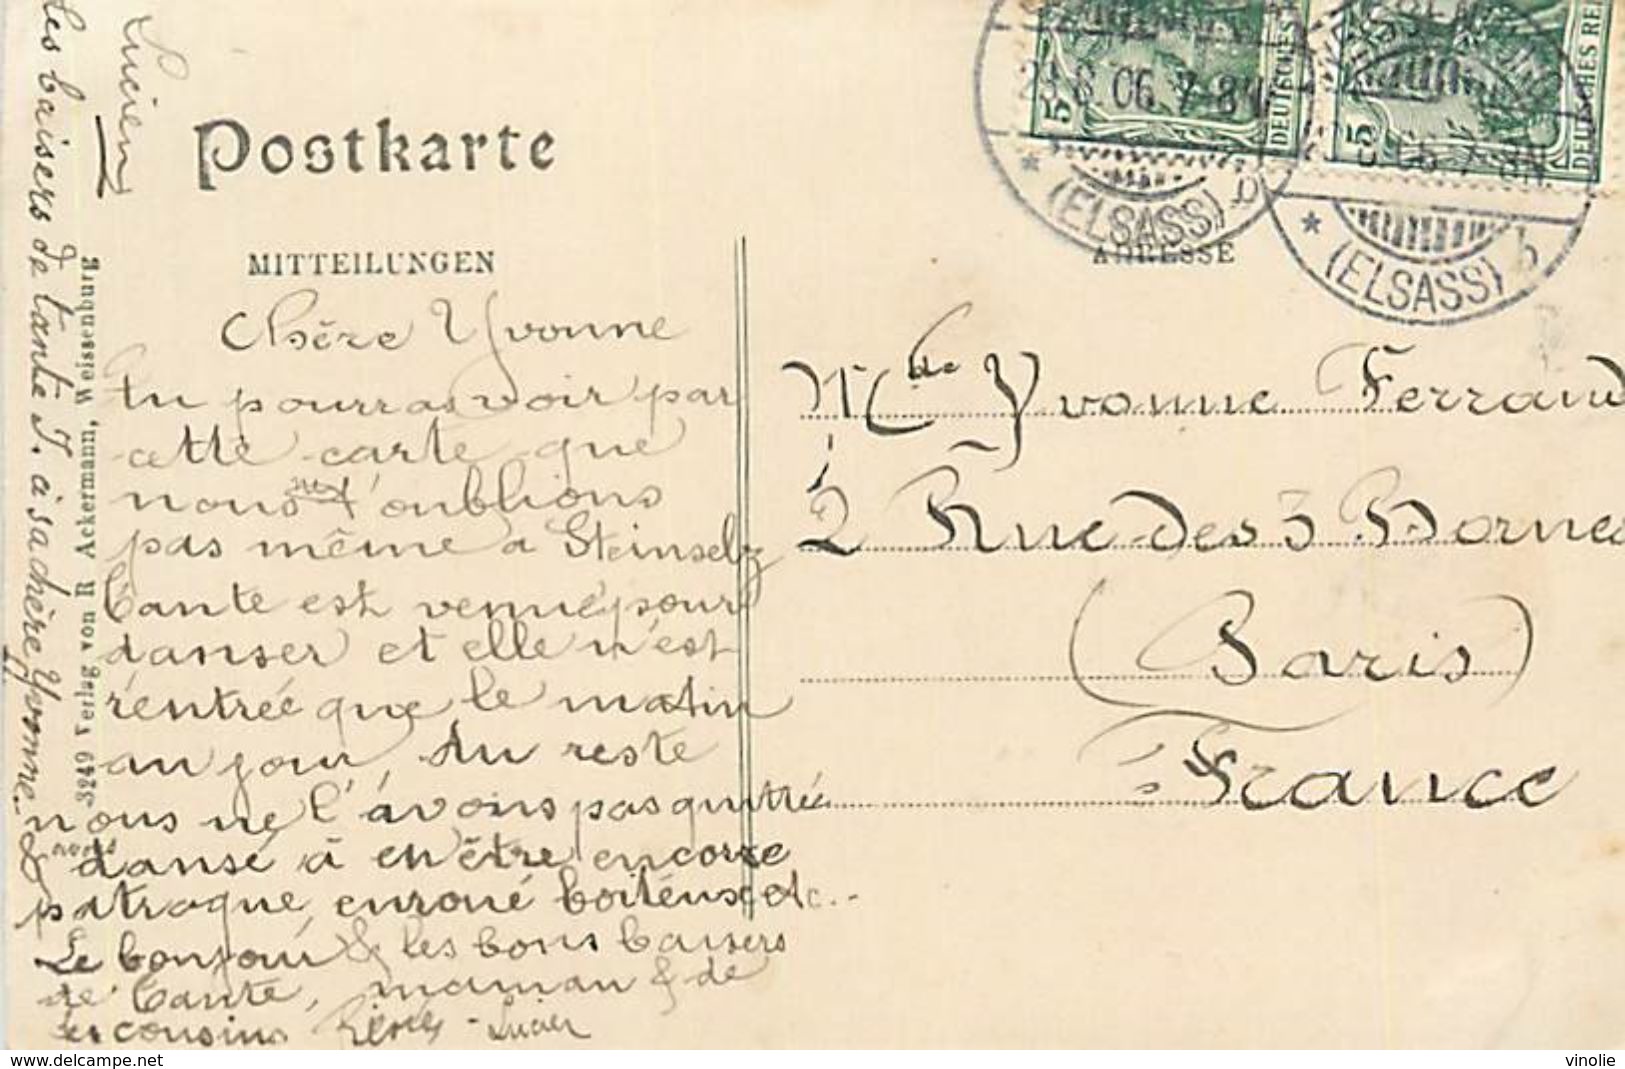 Postkarte
MITTEILUNGEN
ADRESSE
Chère Yvonne
tu pourras voir par
cette carte que
nous ne t'oublions
pas même a Steinselz
Tante est venue pour
danser et elle n'est
rentrée que le matin
au jour, du reste
nous ne l'avons pas quittée
& avons dansé à en être encore
patraque, enroué boiteux etc..
Le bonjour & les bons baisers
de Tante, maman & de
tes cousins Lucien
les baisers de tante J. à sa chère Yvonne.
Lucien
3249 Verlag von R Ackermann, Weissenburg
Mlle Yvonne Ferrand
2 Rue des 3 Bornes
(Paris)
France
5
DEUTSCHES
5
DEUTSCHES REI
6.06.7-8N
(ELSASS)
b
(ELSASS)
b
www.delcampe.net
vinolie